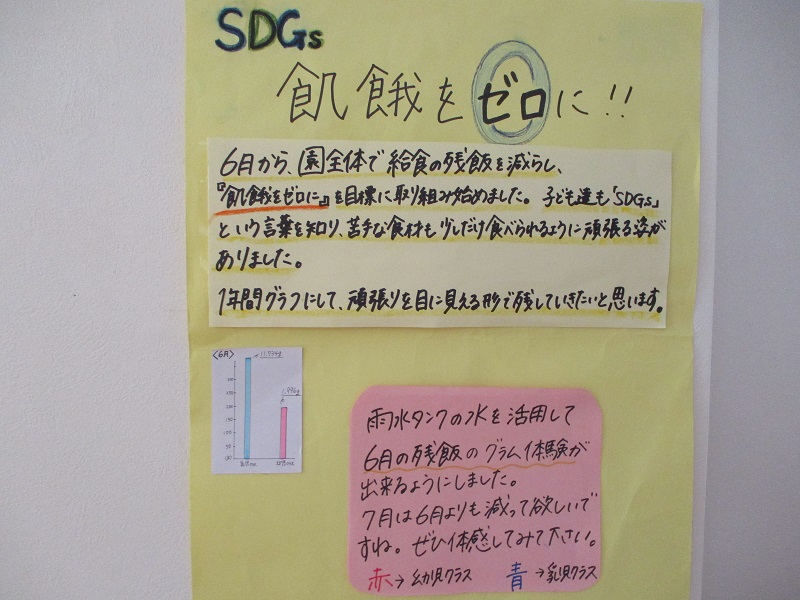 SDGs
飢餓をゼロに!!
6月から、園全体で給食の残飯を減らし、
『飢餓をゼロに』を目標に取り組み始めました。子ども達も「SDGs」
という言葉を知り、苦手な食材も少しだけ食べられるように頑張る姿が
ありました。
1年間グラフにして、頑張りを目に見える形で残していきたいと思います。
〈6月〉
雨水タンクの水を活用して
6月の残飯のグラム体験が
出来るようにしました。
7月は6月よりも減って欲しいで
すね。ぜひ体感してみて下さい。
赤→幼児クラス 青→乳児クラス